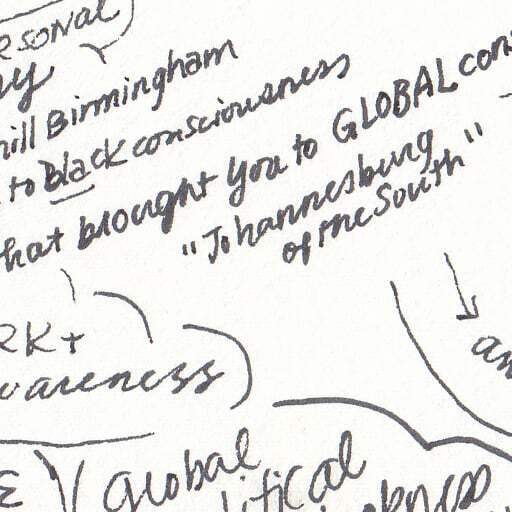 ersonal
ny
hill Birmingham
to black consciousness
that brought you to GLOBAL cons
"Johannesburg
of the South"
RK +
wareness
an
Global
litical